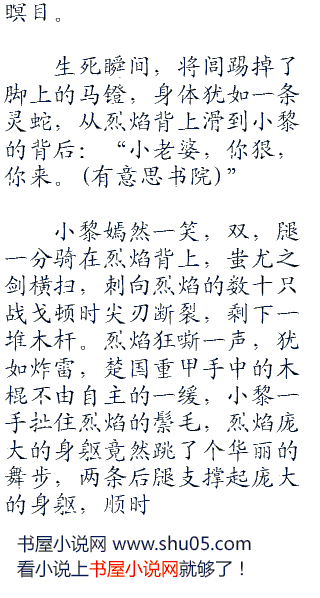 瞑目。
生死瞬间，将闾踢掉了
脚上的马镫，身体犹如一条
灵蛇，从烈焰背上滑到小黎
的背后：“小老婆，你狠，
你来。(有意思书院)”
小黎嫣然一笑，双，腿
一分骑在烈焰背上，蚩尤之
剑横扫，刺向烈焰的数十只
战戈顿时尖刃断裂，剩下一
堆木杆。烈焰狂嘶一声，犹
如炸雷，楚国重甲手中的木
棍不由自主的一缓，小黎一
手扯住烈焰的鬃毛，烈焰庞
大的身躯竟然跳了个华丽的
舞步，两条后腿支撑起庞大
的身躯，顺时
书屋小说网 www.shu05.com
看小说上书屋小说网就够了！